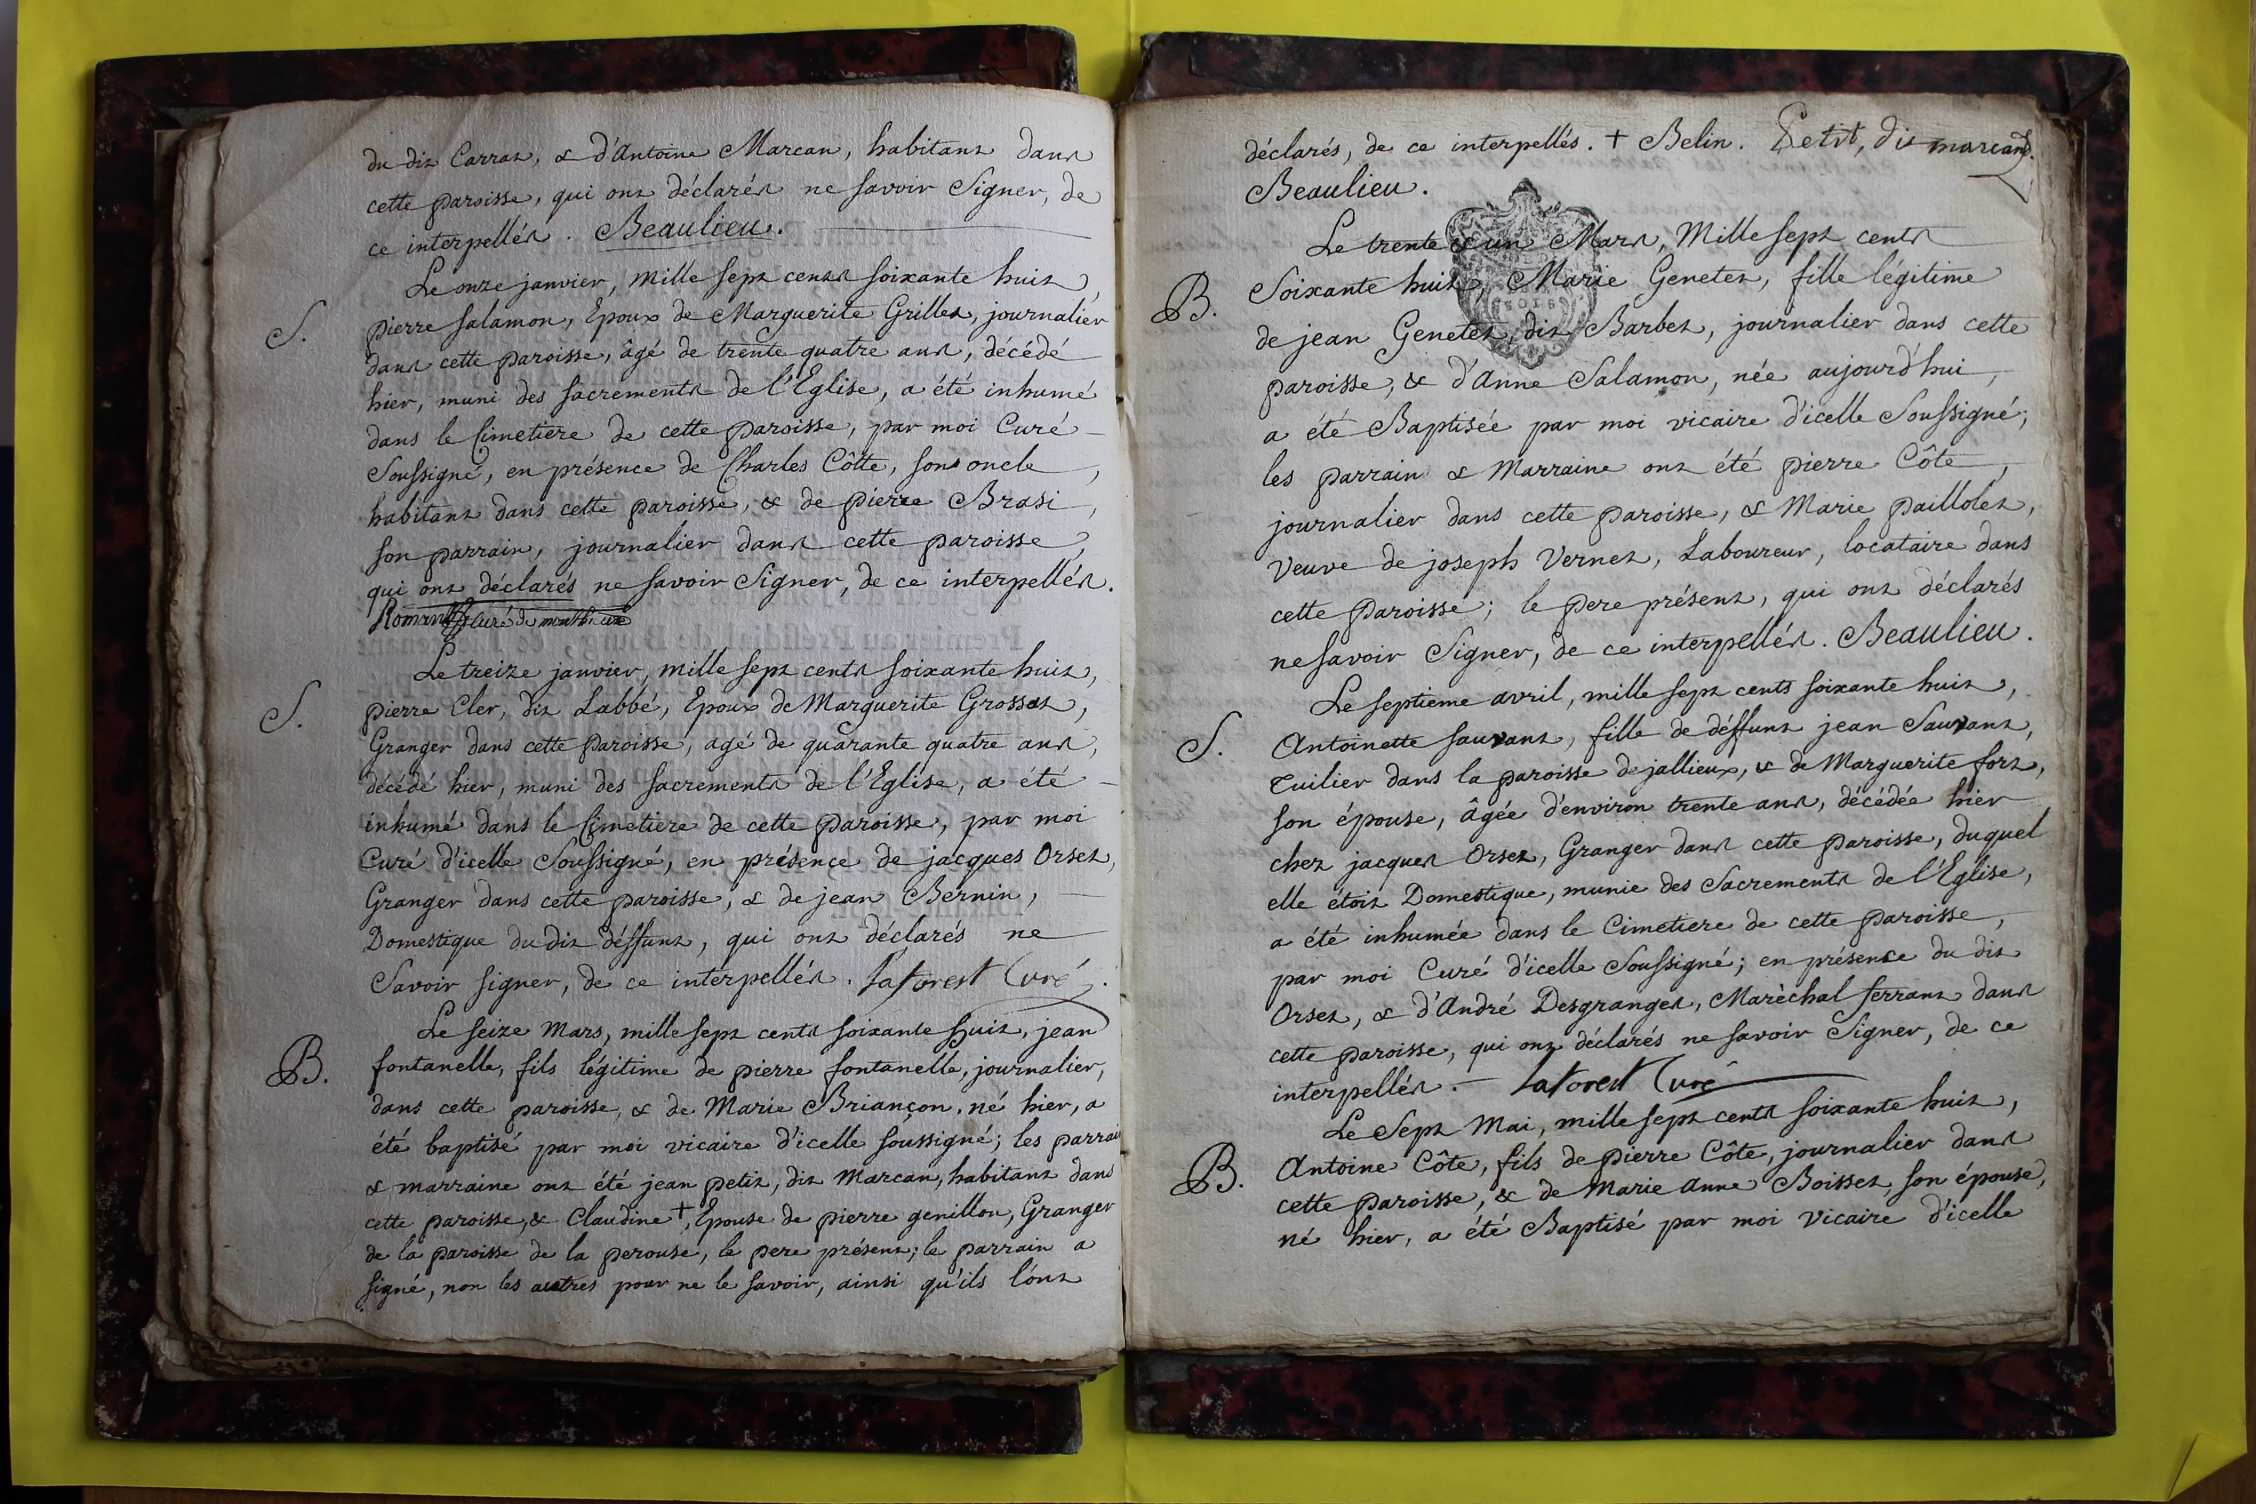 du dit Carrat, & d'Antoine Marcan, habitant dans
cette paroisse, qui ont déclarés ne savoir Signer, de
ce interpellés. Beaulieu.
Le onze janvier, mille sept cents soixante huit,
S.
pierre salamon, Epoux de Marguerite Grillet, journalier
dans cette paroisse, âgé de trente quatre ans, décédé
hier, muni des sacrements de l'Eglise, a été inhumé
dans le Cimetiere de cette paroisse, par moi Curé
Soussigné, en présence de Charles Côtte, son oncle,
habitant dans cette paroisse, & de pierre Brasi,
son parrain, journalier dans cette paroisse,
qui ont déclarés ne savoir Signer, de ce interpellés.
curé de
Le treize janvier, mille sept cents soixante huit,
S.
pierre Cler, dit Labbé, Epoux de Marguerite Grossat,
Granger dans cette paroisse, agé de quarante quatre ans,
décédé hier, muni des sacrements de l'Eglise, a été
inhumé dans le Cimetiere de cette paroisse, par moi
Curé d'icelle Soussigné, en présence de jacques Orset,
Granger dans cette paroisse, & de jean Bernin,
Domestique du dit déffunt, qui ont déclarés ne
Savoir signer, de ce interpellés. Laforest Curé.
Le seize Mars, mille sept cents soixante huit, jean
B.
fontanelle, fils légitime de pierre fontanelle, journalier,
dans cette paroisse, & de Marie Briançon, né hier, a
été baptisé par moi vicaire d'icelle soussigné; les parrain
& marraine ont été jean petit, dit Marcan, habitant dans
cette paroisse, & Claudine +, Epouse de pierre genillon, Granger
de la paroisse de la perouse, le pere présent; le parrain a
signé, non les autres pour ne le savoir, ainsi qu'ils l'ont
déclarés, de ce interpellés. + Belin. Petit, dit marcand.
Beaulieu.
Le trente & un Mars, Mille sept cents
B.
Soixante huit, Marie Genetet, fille légitime
de jean Genetet, dit Barbet, journalier dans cette
paroisse, & d'Anne Salamon, née aujourd'hui,
a été Baptisée par moi vicaire d'icelle Soussigné;
les parrain & Marraine ont été pierre Côte,
journalier dans cette paroisse, & Marie paillolet,
Veuve de joseph Vernet, Laboureur, locataire dans
cette paroisse; le pere présent, qui ont déclarés
ne savoir Signer, de ce interpellés. Beaulieu.
Le septieme avril, mille sept cents soixante huit,
S.
Antoinette sauvant, fille de déffunt jean Sauvant,
Tuilier dans la paroisse de jallieux, & de Marguerite fort,
son épouse, âgée d'environ trente ans, décédée hier
chez jacques Orset, Granger dans cette paroisse, duquel
elle étoit Domestique, munie des Sacrements de l'Eglise,
a été inhumée dans le Cimetiere de cette paroisse,
par moi Curé d'icelle Soussigné; en présence du dit
Orset, & d'André Desgranges, Maréchal ferrant dans
cette paroisse, qui ont déclarés ne savoir Signer, de ce
interpellés. Laforest Curé
Le Sept Mai, mille sept cents soixante huit,
B.
Antoine Côte, fils de pierre Côte, journalier dans
cette paroisse, & de Marie anne Boisset, son épouse,
né hier, a été Baptisé par moi Vicaire d'icelle